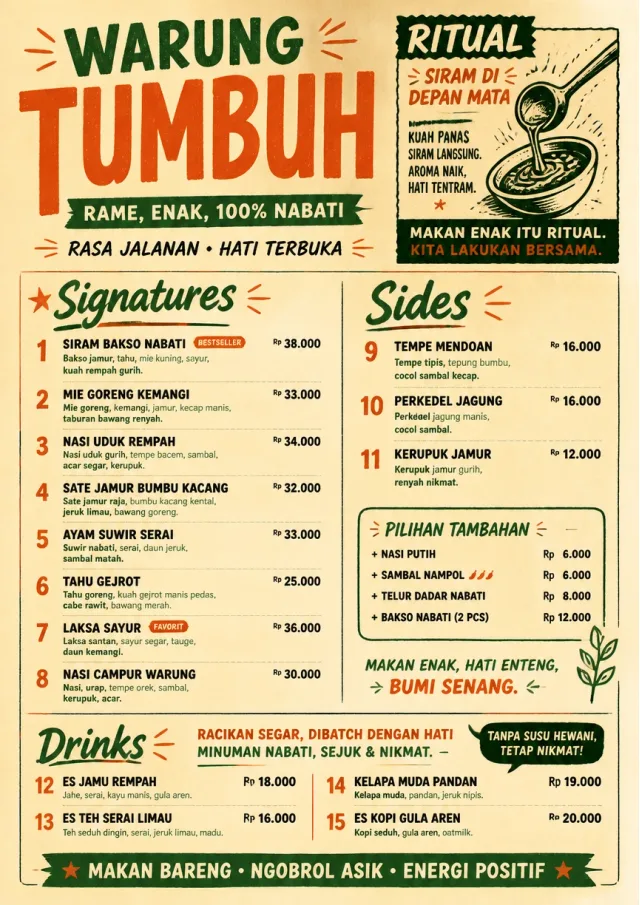 WARUNG
TUMBUH
RAME, ENAK, 100% NABATI
RASA JALANAN • HATI TERBUKA
RITUAL
SIRAM DI
DEPAN MATA
KUAH PANAS
SIRAM LANGSUNG.
AROMA NAIK,
HATI TENTRAM.
MAKAN ENAK ITU RITUAL.
KITA LAKUKAN BERSAMA.
Signatures
1 SIRAM BAKSO NABATI BESTSELLER Rp 38.000
Bakso jamur, tahu, mie kuning, sayur,
kuah rempah gurih.
2 MIE GORENG KEMANGI Rp 33.000
Mie goreng, kemangi, jamur, kecap manis,
taburan bawang renyah.
3 NASI UDUK REMPAH Rp 34.000
Nasi uduk gurih, tempe bacem, sambal,
acar segar, kerupuk.
4 SATE JAMUR BUMBU KACANG Rp 32.000
Sate jamur raja, bumbu kacang kental,
jeruk limau, bawang goreng.
5 AYAM SUWIR SERAI Rp 33.000
Suwir nabati, serai, daun jeruk,
sambal matah.
6 TAHU GEJROT Rp 25.000
Tahu goreng, kuah gejrot manis pedas,
cabe rawit, bawang merah.
7 LAKSA SAYUR FAVORIT Rp 36.000
Laksa santan, sayur segar, tauge,
daun kemangi.
8 NASI CAMPUR WARUNG Rp 30.000
Nasi, urap, tempe orek, sambal,
kerupuk, acar.
Sides
9 TEMPE MENDOAN Rp 16.000
Tempe tipis, tepung bumbu,
cocol sambal kecap.
10 PERKEDEL JAGUNG Rp 16.000
Perkedel jagung manis,
cocol sambal.
11 KERUPUK JAMUR Rp 12.000
Kerupuk jamur gurih,
renyah nikmat.
PILIHAN TAMBAHAN
+ NASI PUTIH Rp 6.000
+ SAMBAL NAMPOL Rp 6.000
+ TELUR DADAR NABATI Rp 8.000
+ BAKSO NABATI (2 PCS) Rp 12.000
MAKAN ENAK, HATI ENTENG,
BUMI SENANG.
Drinks
RACIKAN SEGAR, DIBATCH DENGAN HATI
MINUMAN NABATI, SEJUK & NIKMAT.
TANPA SUSU HEWANI,
TETAP NIKMAT!
12 ES JAMU REMPAH Rp 18.000
Jahe, serai, kayu manis, gula aren.
13 ES TEH SERAI LIMAU Rp 16.000
Teh seduh dingin, serai, jeruk limau, madu.
14 KELAPA MUDA PANDAN Rp 19.000
Kelapa muda, pandan, jeruk nipis.
15 ES KOPI GULA AREN Rp 20.000
Kopi seduh, gula aren, oatmilk.
MAKAN BARENG • NGOBROL ASIK • ENERGI POSITIF